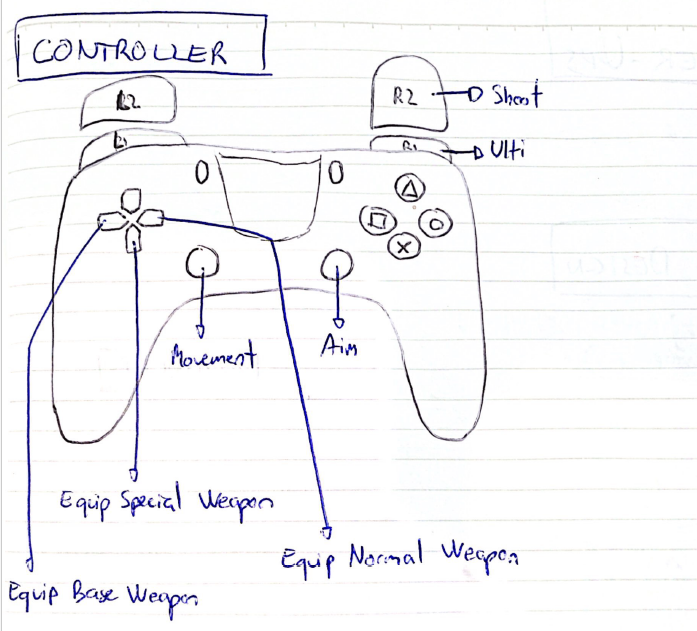 CONTROLLER
R2
R2
Shoot
L1
R1
Ulti
Movement
Aim
Equip Special Weapon
Equip Normal Weapon
Equip Base Weapon